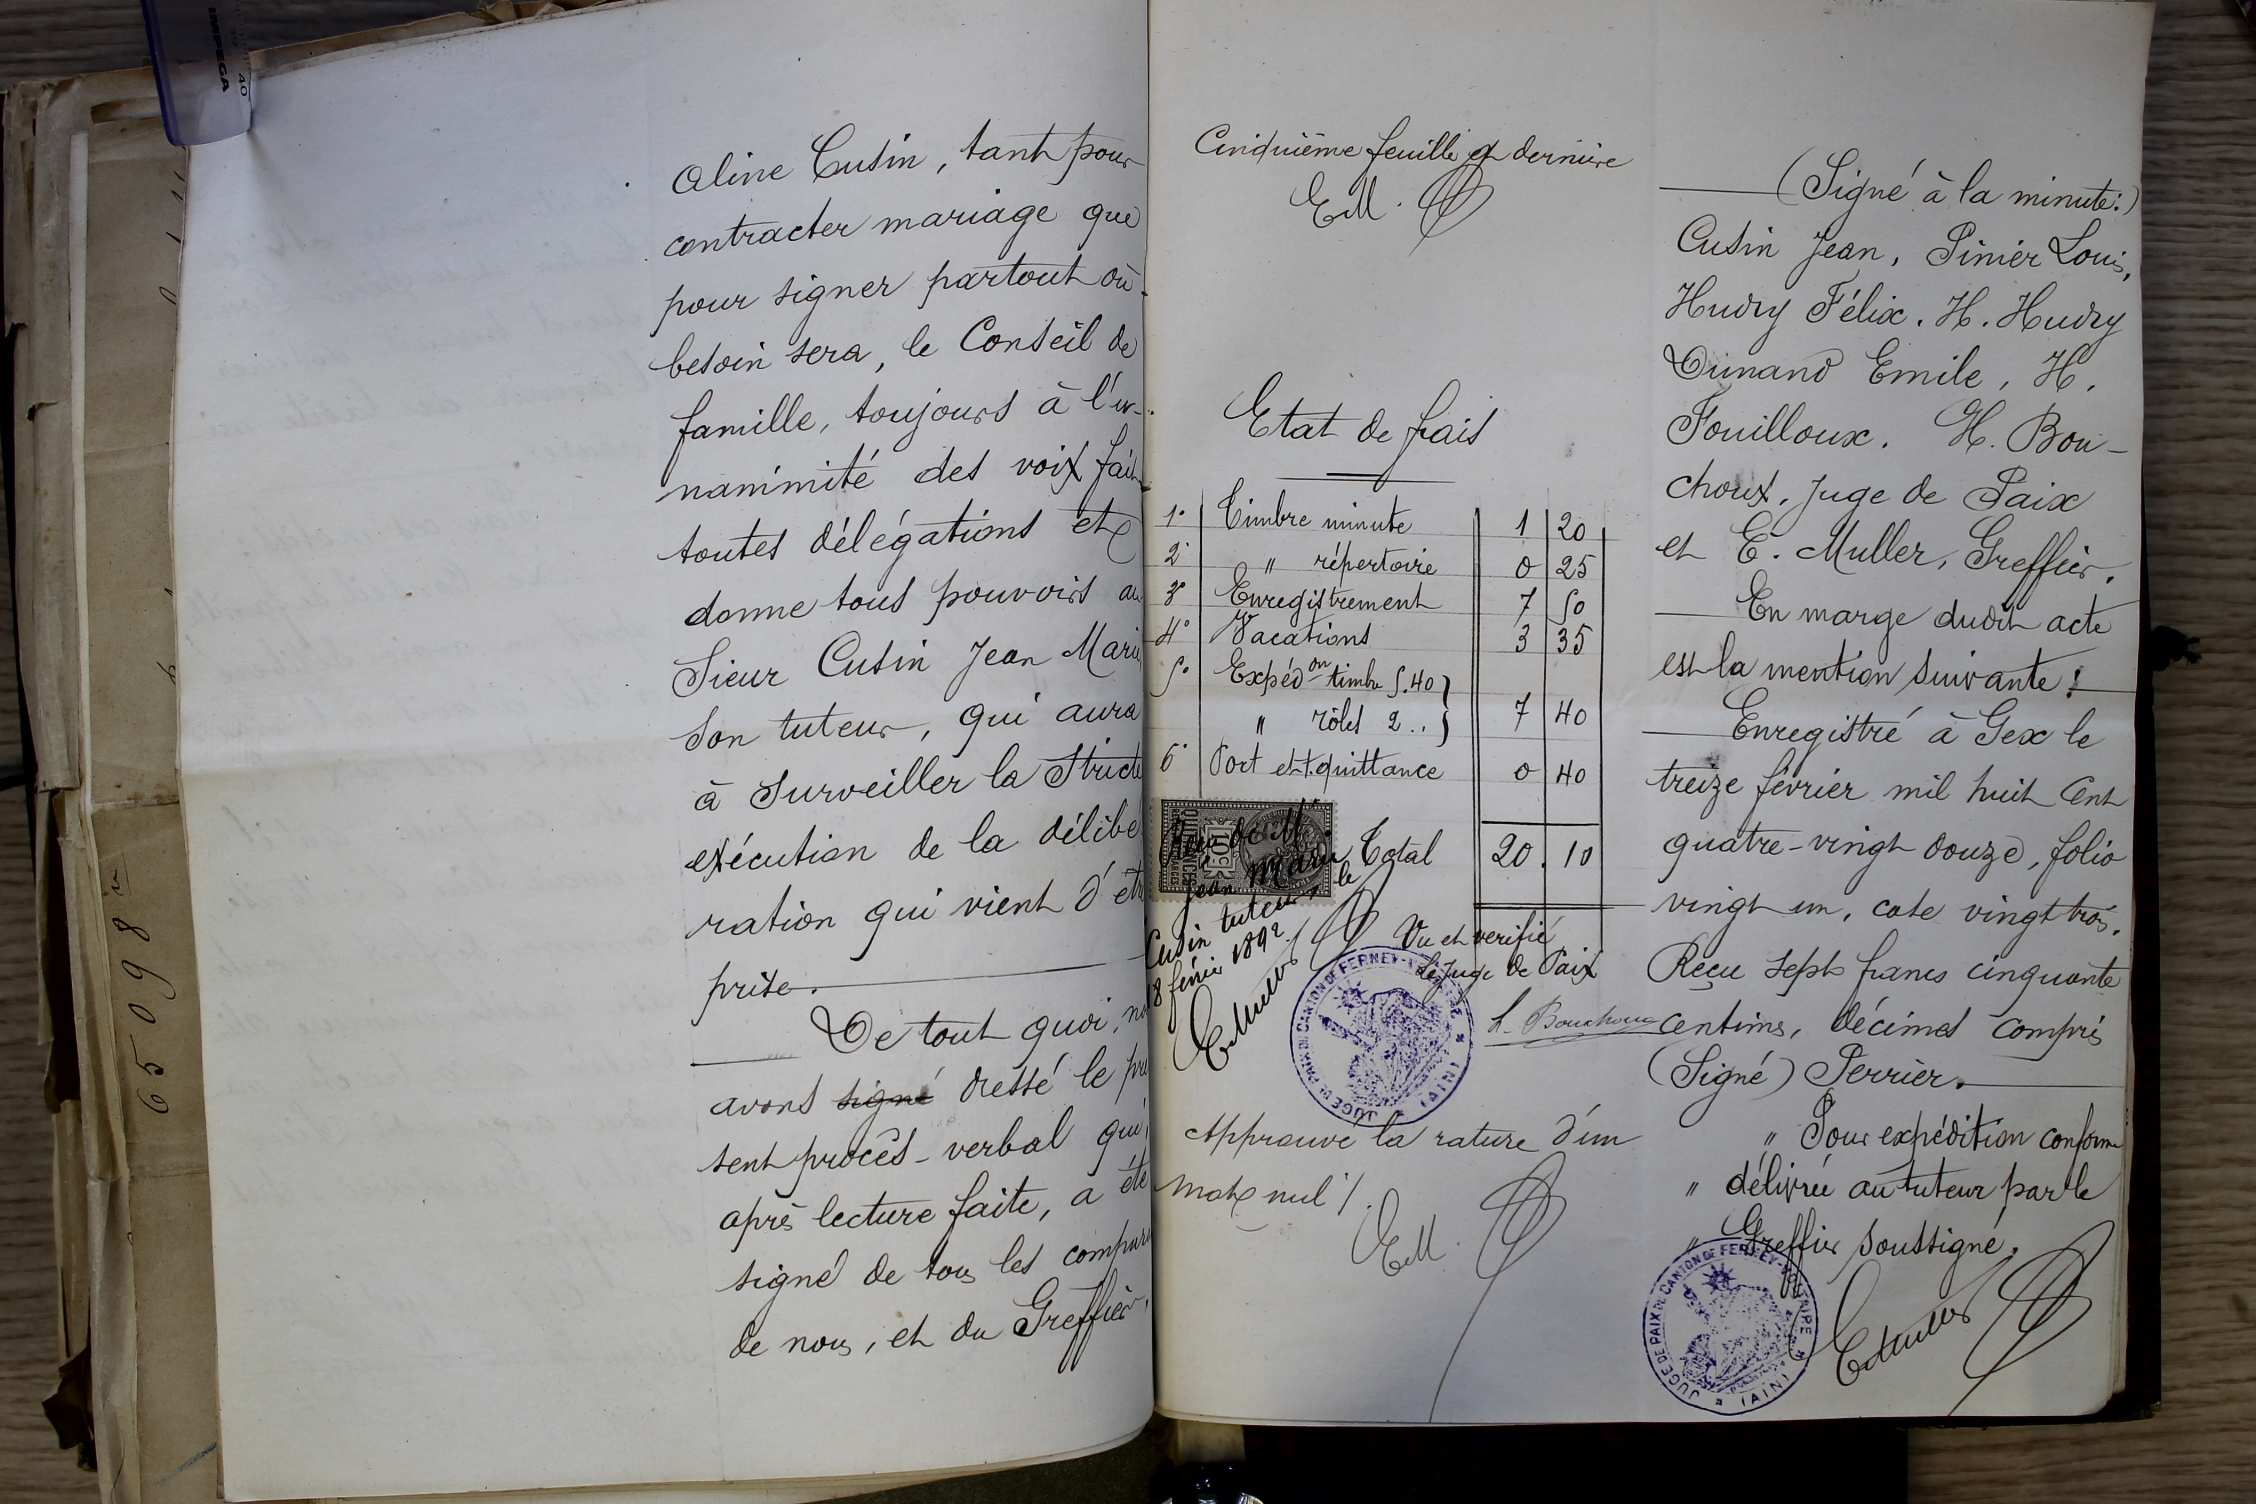 Aline Cusin, tant pour
contracter mariage que
pour signer partout où
besoin sera, le Conseil de
famille, toujours à l'u-
nanimité des voix fait
toutes délégations et
donne tous pouvoirs au
Sieur Cusin Jean Marie
son tuteur, qui aura
à surveiller la stricte
exécution de la délibé
ration qui vient d'être
prise.
De tout quoi, no
avons signé dressé le pré
sent procès-verbal qui,
après lecture faite, a été
signé de tous les compar
de nous, et du Greffier,
65098
IMPEGA
40
Cinquième feuille et dernière
EM.
Etat de frais
1° Timbre minute 1 20
2° " répertoire 0 25
3° Enregistrement 7 50
4° Vacations 3 35
5° Expéd on timbre 5.40
" rôles 2 .. 7 40
6° Port et t. quittance 0 40
Total 20.10
Reçu de M.
Jean Marie
Cusin tuteur, le
18 février 1892
EMuller
Vu et verifié
Le Juge de Paix
H. Bouchoux
JUGE DE PAIX DU CANTON DE FERNEY-VOLTAIRE (AIN)
Approuvé la rature d'un
mot nul /.
EM.
(Signé à la minute:)
Cusin Jean, Pinier Louis,
Hudry Félix. H. Hudry
Dunand Emile, H.
Fouilloux. H. Bou-
choux, Juge de Paix
et E. Muller, Greffier.
En marge dudit acte
est la mention suivante:
Enregistré à Gex le
treize février mil huit cent
quatre-vingt douze, folio
vingt un, case vingt trois.
Reçu sept francs cinquante
centimes, décimes compris
(Signé) Perrier.
" Pour expédition conforme
" délivrée au tuteur par le
" Greffier soussigné.
EMuller
JUGE DE PAIX DU CANTON DE FERNEY-VOLTAIRE (AIN)